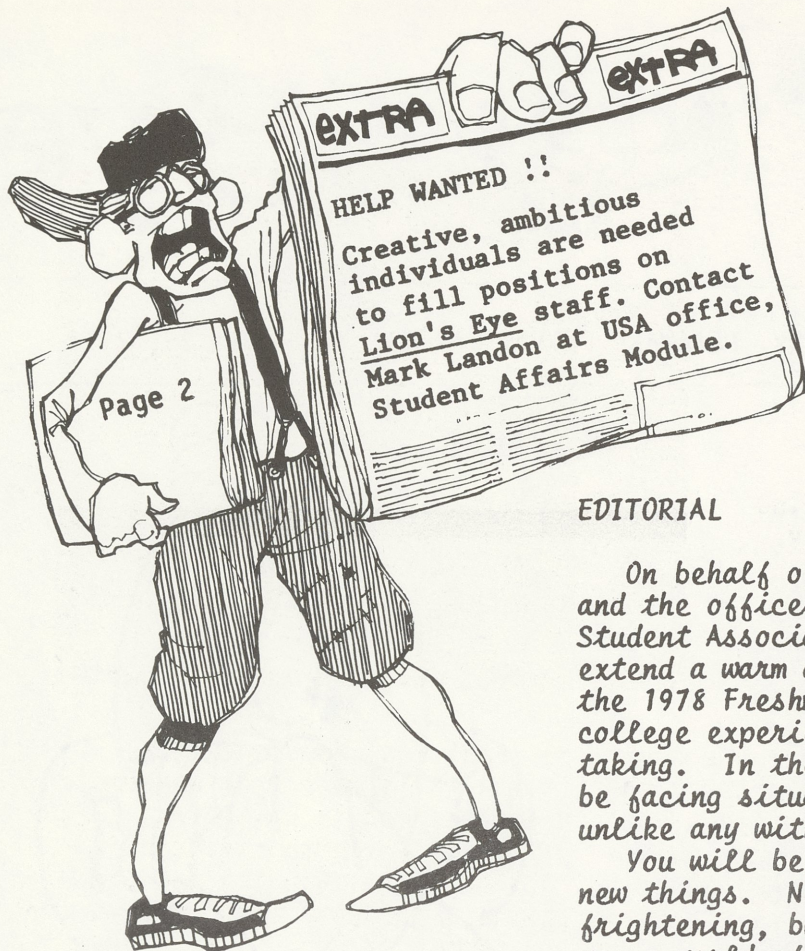 extRA extRA
HELP WANTED !!
Creative, ambitious
individuals are needed
to fill positions on
Lion's Eye staff. Contact
Mark Landon at USA office,
Student Affairs Module.
Page 2
EDITORIAL
On behalf
and the
Student
extend a warm
the 1978
college
taking. In
be facing
unlike any
You will be
new things.
frightening,